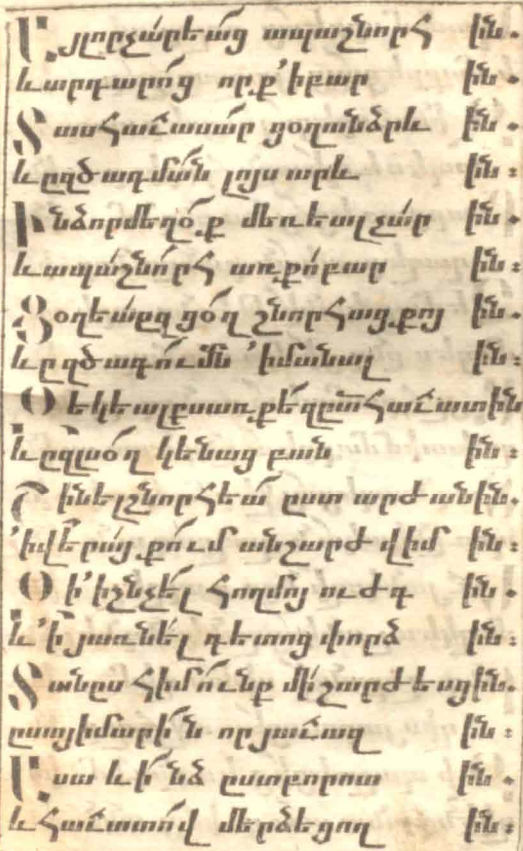 Այլ որ չարեաց ապաշնորհ ին.
և արդարոց որ ք՚ի բար ին.
Տաս հաւասար ցօղ անձրև ին.
և ըզծագման լոյս արև ին:
Ինձ որ մեղօք մեռեալ չար ին.
և ապաշնորհ առ քո բար ին:
Ցօղեա զցօղ շնորհաց քոյ ին.
և ըզծագումն ՚իմանալ ին:
Զեկեալքս առ քեզ ըստ հաւատ ին
և ըզլսօղ կենաց բան ին:
Շինել շնորհեա ըստ արժան ին.
՚ի վերայ քում անշարժ վիմ ին:
Զի ՚ի շնչել հողմոյ ուժգ ին.
և ՚ի յառնել գետոց փորձ ին:
Տանըս հիմունք մի շարժեսց ին.
ըստ յիմարին որ յաւազ ին:
Ասա և ինձ ըստ բորոտ ին.
և հաւատով մերձեցող ին: